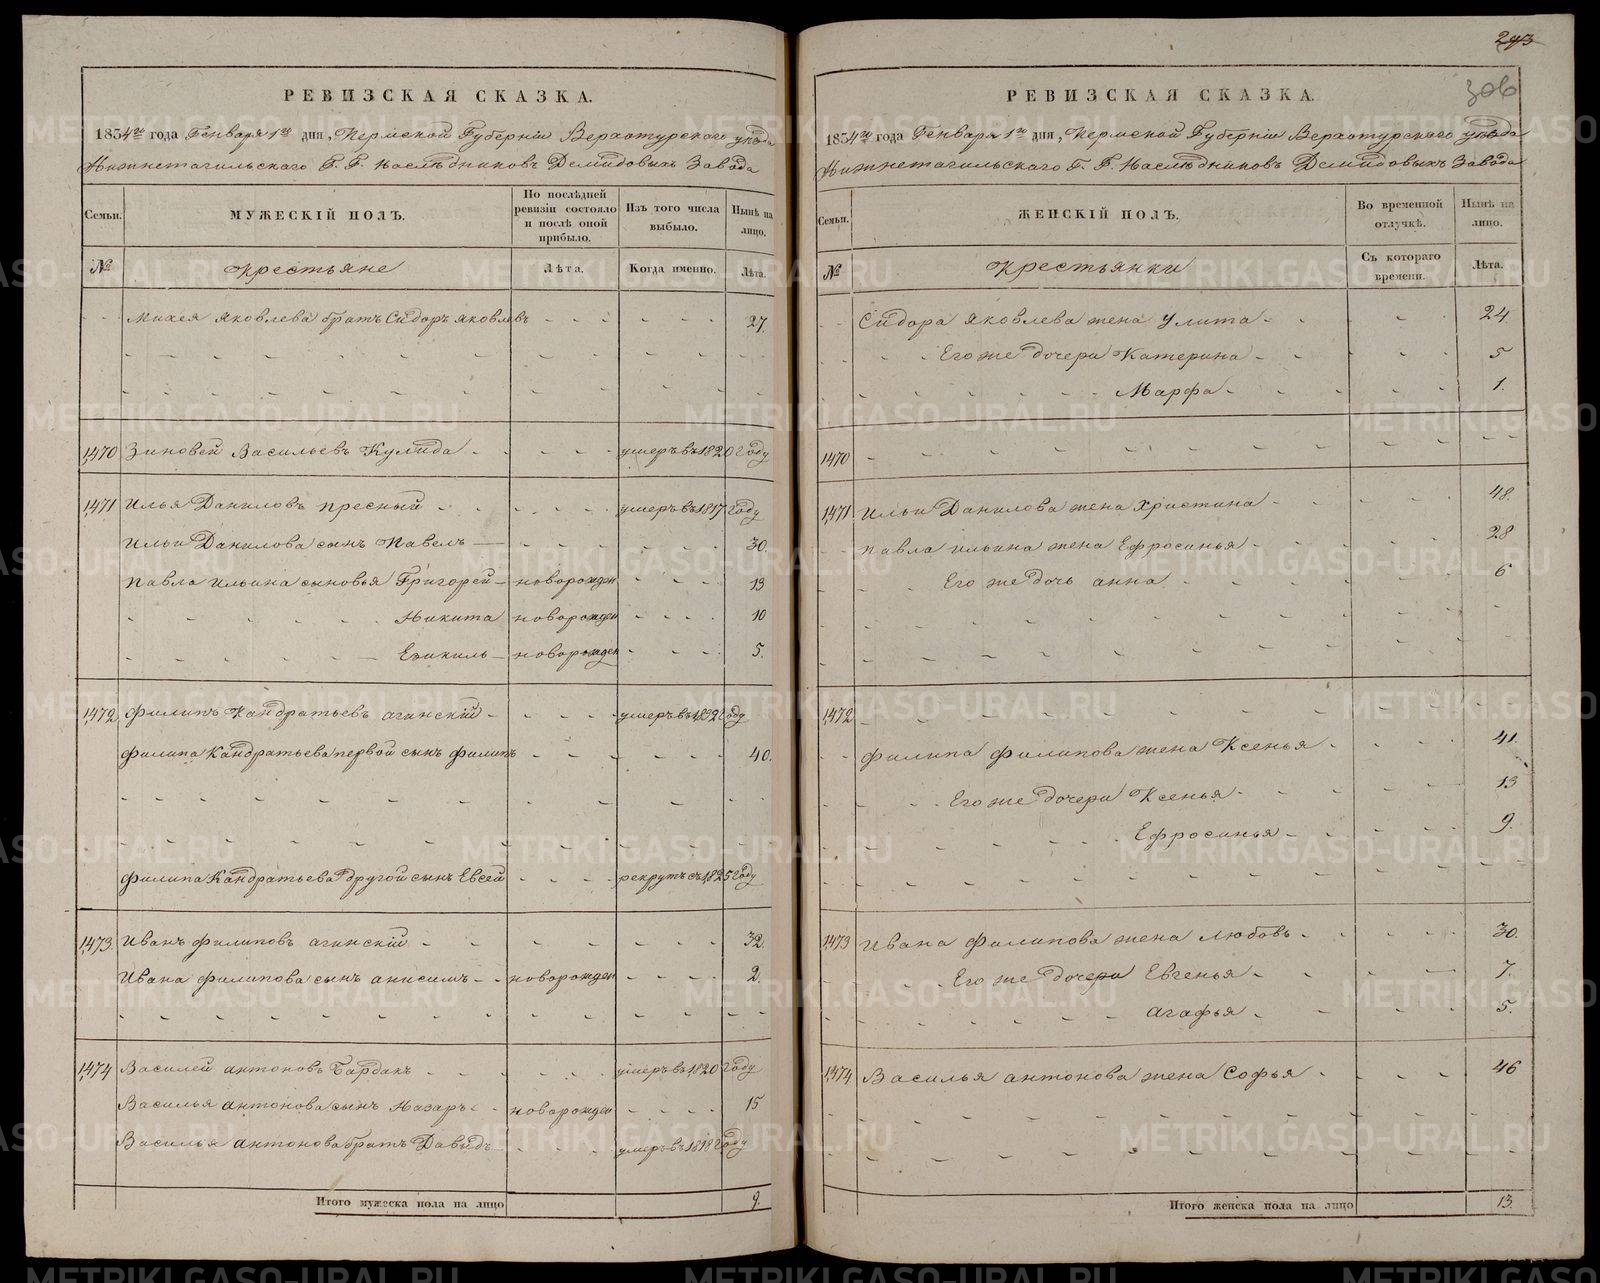 РЕВИЗСКАЯ СКАЗКА.
1834го года Генваря 1го дня, Пермской Губерніи Верхотурскаго уѣзда
Нижнетагильскаго Г. Г. Наслѣдниковъ Демидовыхъ Завода
Семьи. МУЖЕСКІЙ ПОЛЪ. По послѣдней ревизіи состояло и послѣ оной прибыло. Изъ того числа выбыло. Нынѣ на лицо.
№ Крестьяне Лѣта. Когда именно. Лѣта.
Михея Яковлева братъ Сидоръ Яковлевъ 27.
1470 Зиновей Васильевъ Кулида умеръ въ 1820 Году
1471 Илья Даниловъ Пресный умеръ въ 1817 Году
Ильи Данилова сынъ Павелъ 30.
Павла Ильина сыновья Григорей новорожден 13
Никита новорожден 10
Езикиль новорожден 5.
1472 Филипъ Кандратьевъ Агинскій умеръ въ Году
Филипа Кандратьева первой сынъ Филипъ 40.
Филипа Кандратьева другой сынъ Евсей рекрутъ съ 1825 Году
1473. Иванъ Филиповъ Агинскій 32.
Ивана Филипова сынъ Анисимъ новорожден 2.
1474 Василей Антоновъ Бардакъ умеръ въ 1820 Году
Василья Антонова сынъ Назаръ новорожден 15
Василья Антонова братъ Давидъ умеръ въ 1818 Году
Итого мужеска пола на лицо 9.
293
306
РЕВИЗСКАЯ СКАЗКА.
1834го года Генваря 1го дня, Пермской Губерніи Верхотурскаго уѣзда
Нижнетагильскаго Г. Г. Наслѣдниковъ Демидовыхъ Завода
Семьи. ЖЕНСКІЙ ПОЛЪ. Во временной отлучкѣ. Нынѣ на лицо.
№ Крестьянки Съ котораго времени. Лѣта.
Сидора Яковлева жена Улита 24.
Его же дочери Катерина 5
Марфа 1.
1470
1471 Ильи Данилова жена Христина 48.
Павла Ильина жена Ефросинья 28
Его же дочь Анна 6
1472
Филипа Филипова жена Ксенья 41.
Его же дочери Ксенья 13
Ефросинья 9.
1473 Ивана Филипова жена Любовь 30.
Его же дочери Евгенья 7.
Агафья 5.
1474 Василья Антонова жена Софья 46
Итого женска пола на лицо 13.
METRIKI.GASO-URAL.RU